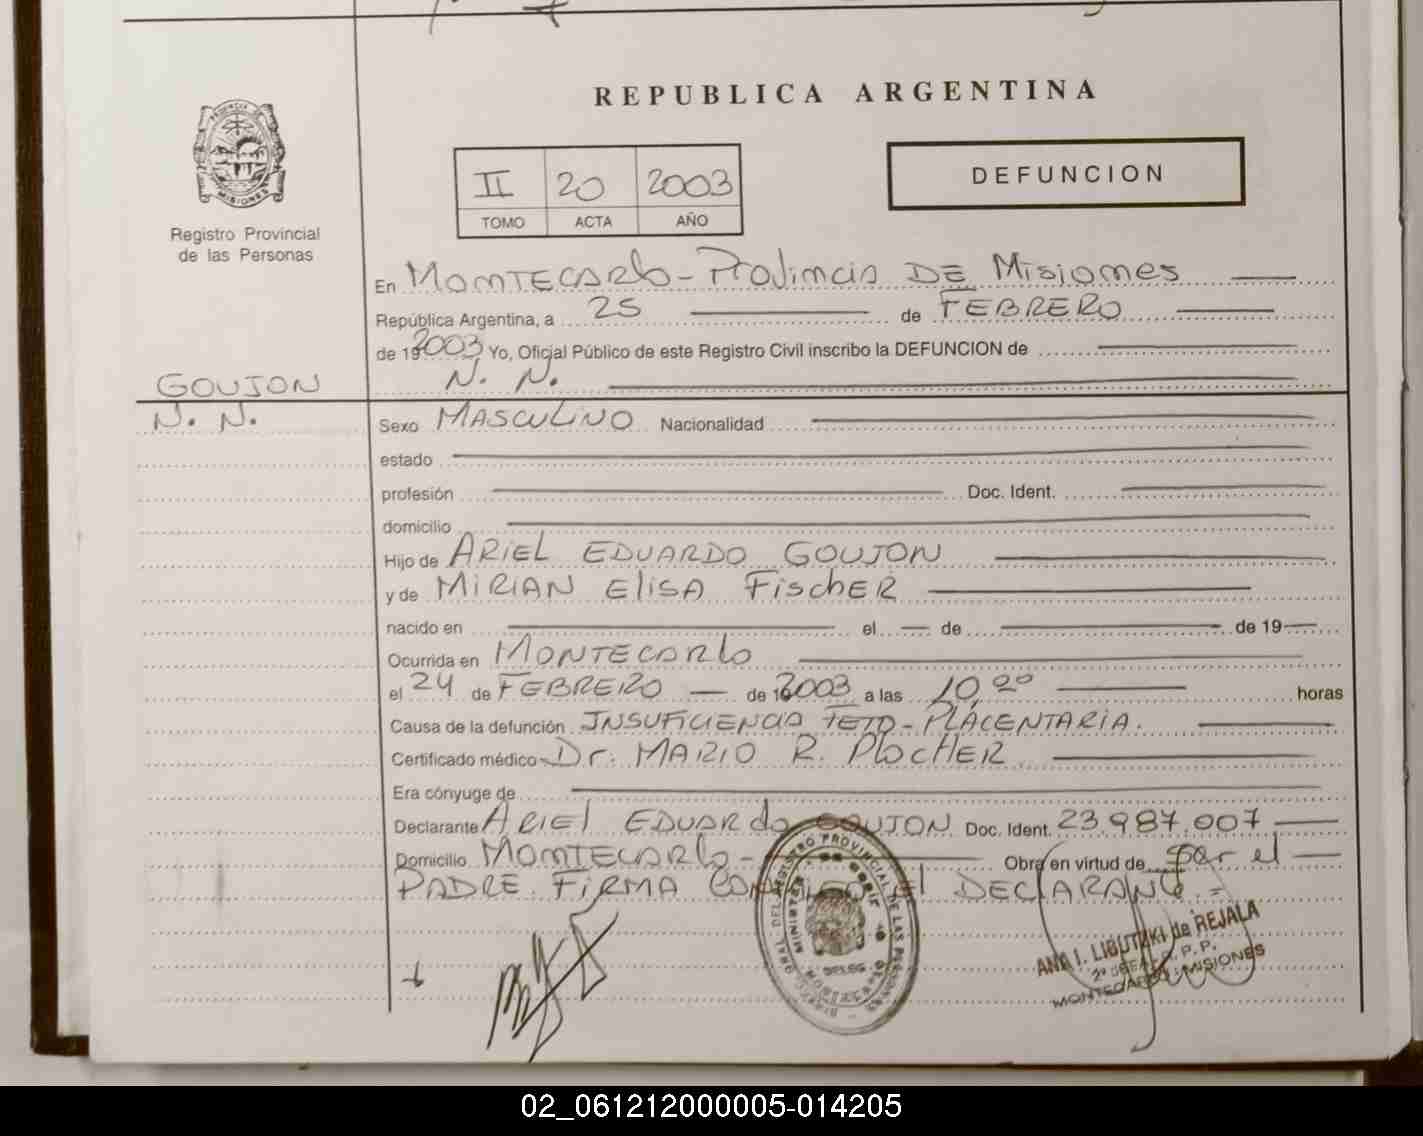 REPUBLICA ARGENTINA
PROVINCIA DE
MISIONES
Registro Provincial
de las Personas
II 20 2003
TOMO ACTA AÑO
DEFUNCION
En MONTECARLO - PROVINCIA DE MISIONES
República Argentina, a 25 de FEBRERO
de 19 2003 Yo, Oficial Público de este Registro Civil inscribo la DEFUNCION de
GOUJON N. N.
N. N. Sexo MASCULINO Nacionalidad
estado
profesión Doc. Ident.
domicilio
Hijo de ARIEL EDUARDO GOUJON
y de MIRIAN ELISA FISCHER
nacido en el de de 19
Ocurrida en MONTECARLO
el 24 de FEBRERO de 2003 a las 10,00 horas
Causa de la defunción INSUFICIENCIA FETO-PLACENTARIA.
Certificado médico Dr. MARIO R. PLOCHER
Era cónyuge de
Declarante ARIEL EDUARDO GOUJON Doc. Ident. 23.987.007
Domicilio MONTECARLO - Obra en virtud de ser el
PADRE. FIRMA CONMIGO EL DECLARANTE.=
GRAL DEL REGISTRO PROVINCIAL DE LAS PERSONAS
ANA I. LIBUTZKI de REJALA
MONTECARLO - MISIONES
02_061212000005-014205